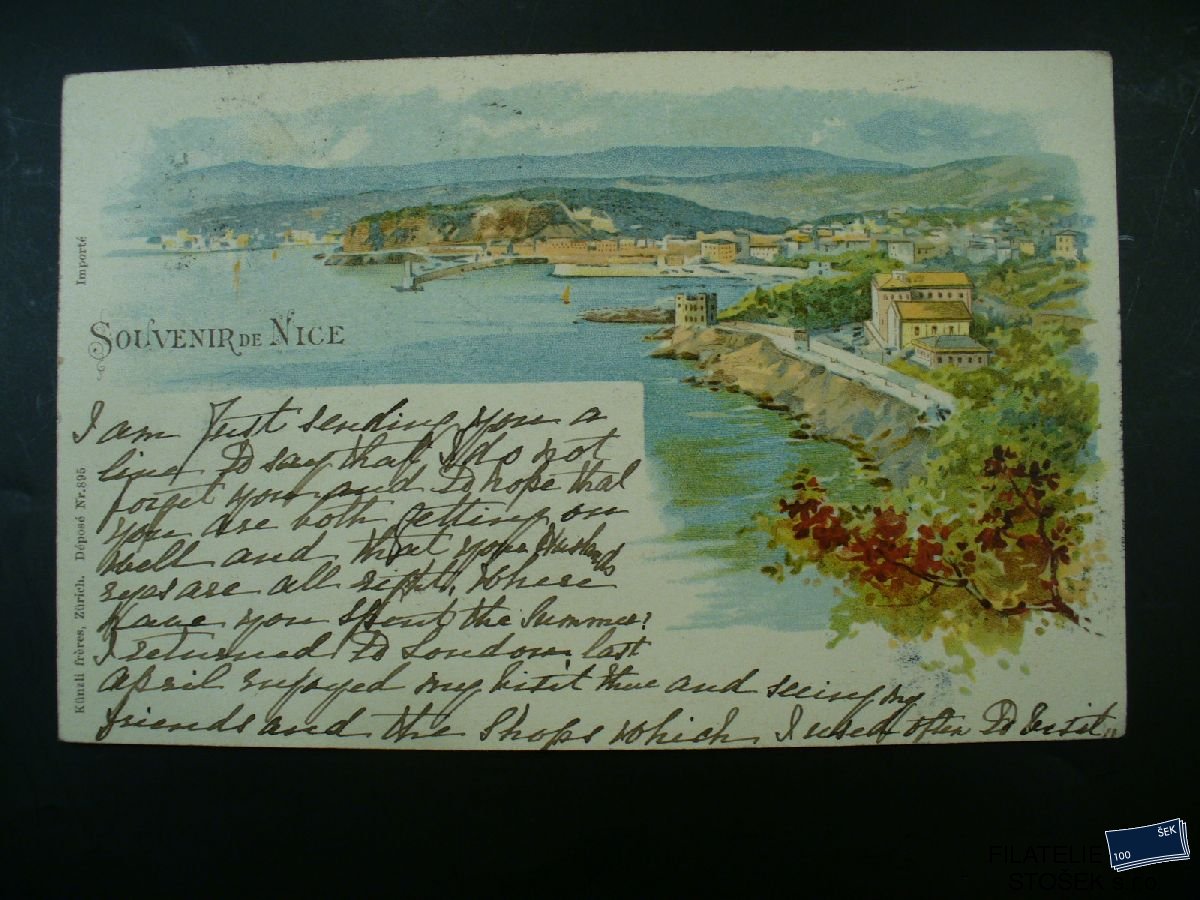 Importé
SOUVENIR DE NICE
Künzli frères, Zürich. Déposé Nr. 895
I am Just sending you a
line To say that I do not
forget you and To hope that
you are both getting on
well and that your Husbands
eyes are all right. Where
have you Spent the Summer?
I returned To London last
april enjoyed my visit there and seeing my
friends and the Shops which I used often To Visit.
ŠEK
100
FILATELIE
STOŠEK s.r.o.